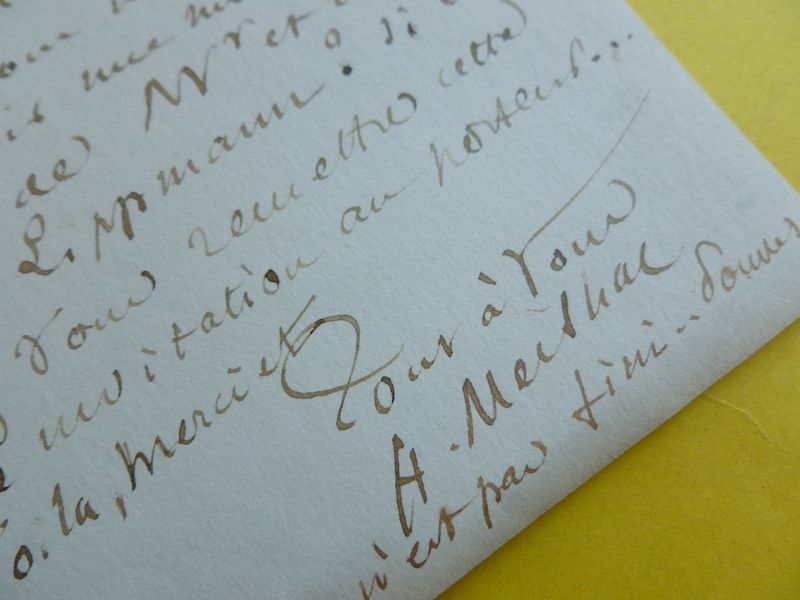 de Mr et
Lippmann : si
vous remettre cette
invitation au porteur...
la, merci et
Tout à vous
H. Meilhac
n'est pas fini.. donnez